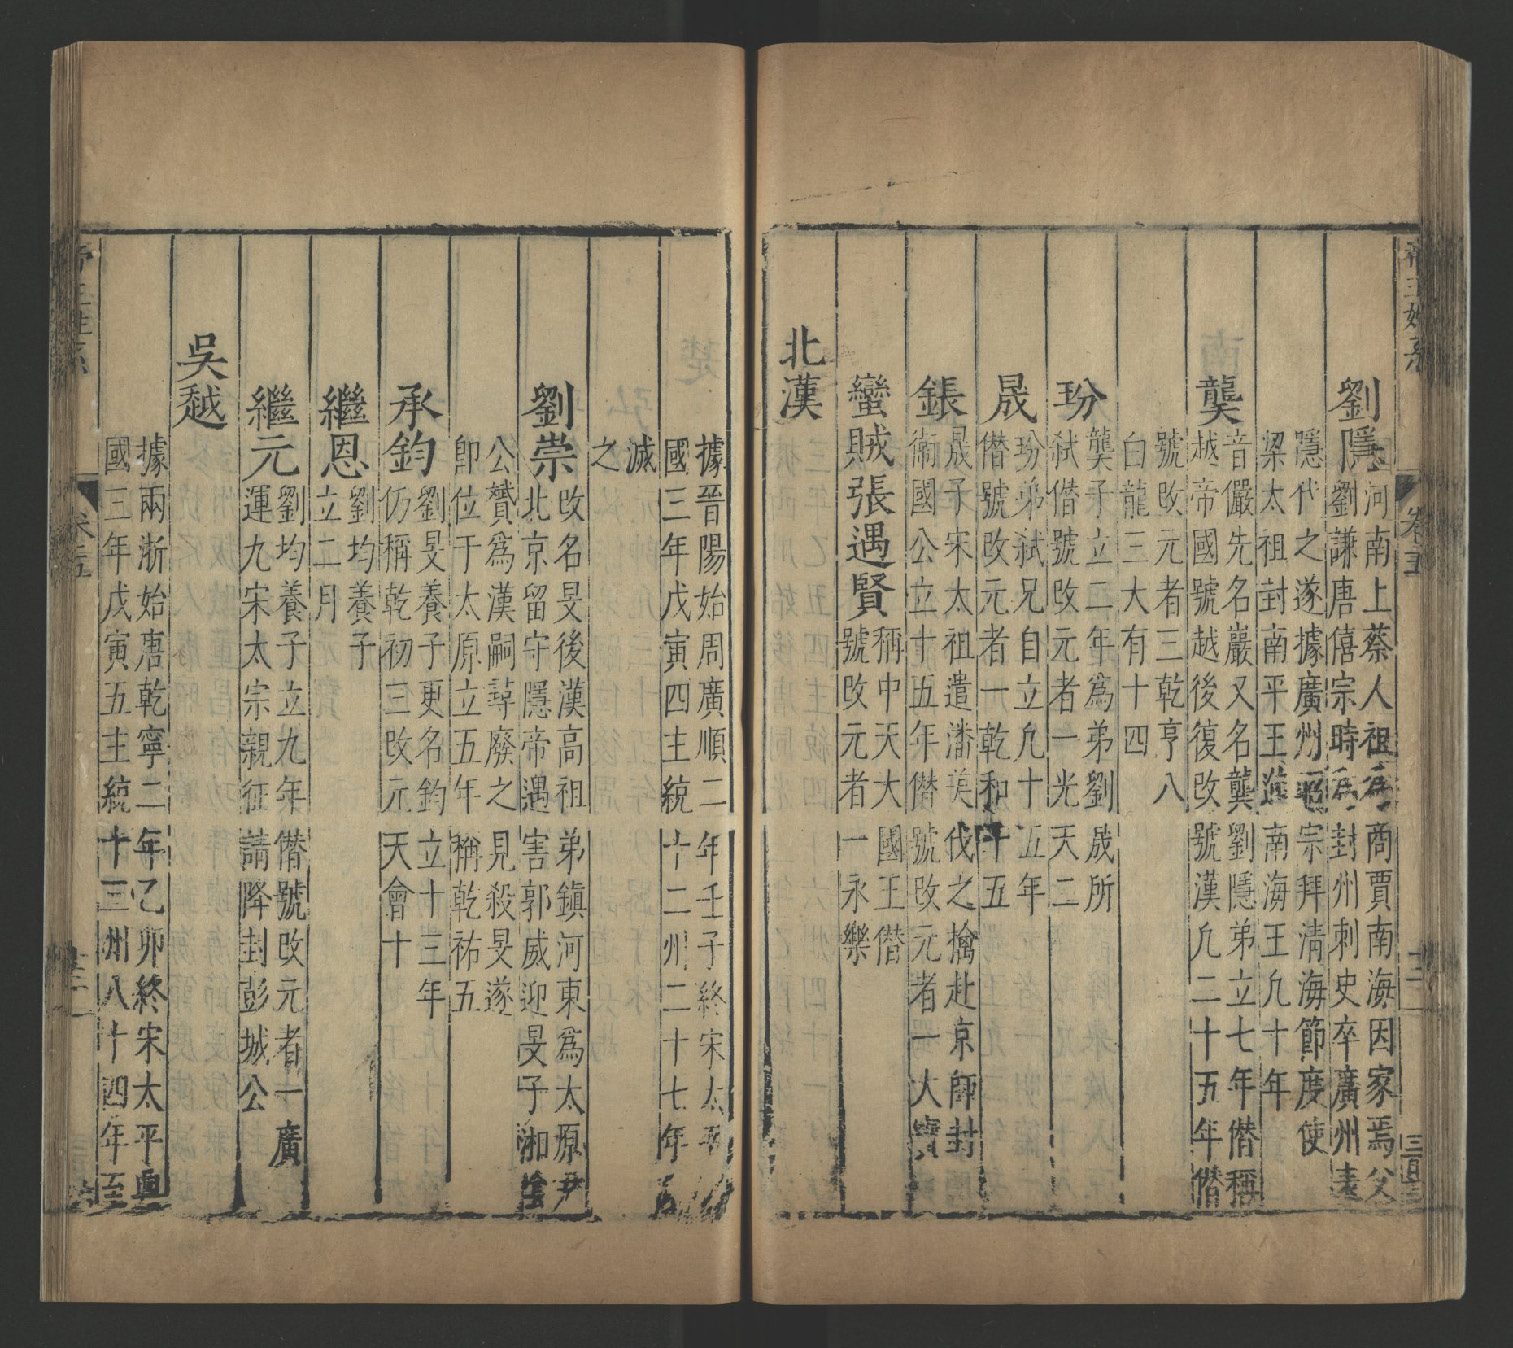 劉隱
河南上蔡人祖 商賈南海因家焉父
劉謙唐僖宗時為封州刺史卒廣州表
隱代之遂據廣州昭宗拜清海節度使
梁太祖封南平王進南海王凡十年
龑
音儼先名巖又名龑劉隱弟立七年僭稱
越帝國號越後復改號漢凡二十五年僭
號改元者三乾亨八
白龍三大有十四
玢
龑子立二年為弟劉晟所
弒僭號改元者一光天二
晟
玢弟弒兄自立凡十五年
僭號改元者一乾和十五
鋹
晟子宋太祖遣潘美伐之擒赴京師封
衞國公立十五年僭號改元者一大寶
蠻賊張遇賢
稱中天大國王僭
號改元者一永樂
北漢
據晉陽始周廣順二年壬子終宋太平
國三年戊寅四主統十二州二十七年
滅
之
劉崇
改名旻後漢高祖弟鎮河東為太原尹
北京留守隱帝遇害郭威迎旻子湘陰
公贇為漢嗣尋廢之見殺旻遂
卽位于太原立五年稱乾祐五
承鈞
劉旻養子更名鈞立十三年
仍稱乾初三改元天會十
繼恩
劉均養子
立二月
繼元
劉均養子立九年僭號改元者一廣
運九宋太宗親征請降封彭城公
吳越
據兩浙始唐乾寧二年乙卯終宋太平興
國三年戊寅五主統十三州八十四年至
帝王姓系
卷五